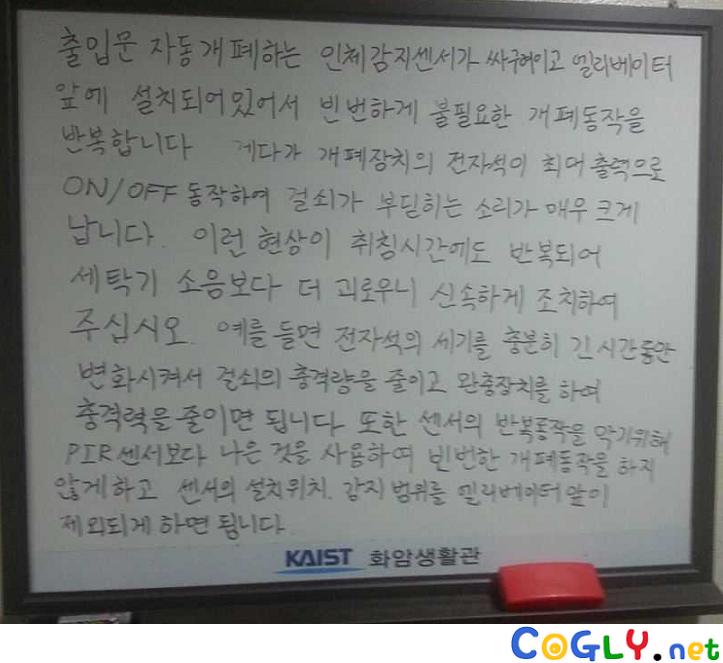 출입문 자동개폐하는 인체감지센서가 싸구려이고 엘리베이터
앞에 설치되어있어서 빈번하게 불필요한 개폐동작을
반복합니다 게다가 개폐장치의 전자석이 최대출력으로
ON/OFF 동작하여 걸쇠가 부딛히는 소리가 매우 크게
납니다. 이런 현상이 취침시간에도 반복되어
세탁기 소음보다 더 괴로우니 신속하게 조치하여
주십시오. 예를 들면 전자석의 세기를 충분히 긴시간동안
변화시켜서 걸쇠의 충격량을 줄이고 완충장치를 하여
충격력을 줄이면 됩니다. 또한 센서의 반복동작을 막기위해
PIR센서보다 나은 것을 사용하여 빈번한 개폐동작을 하지
않게하고 센서의 설치위치, 감지 범위를 엘리베이터앞이
제외되게 하면 됩니다.
KAIST 화암생활관
COGLY.net